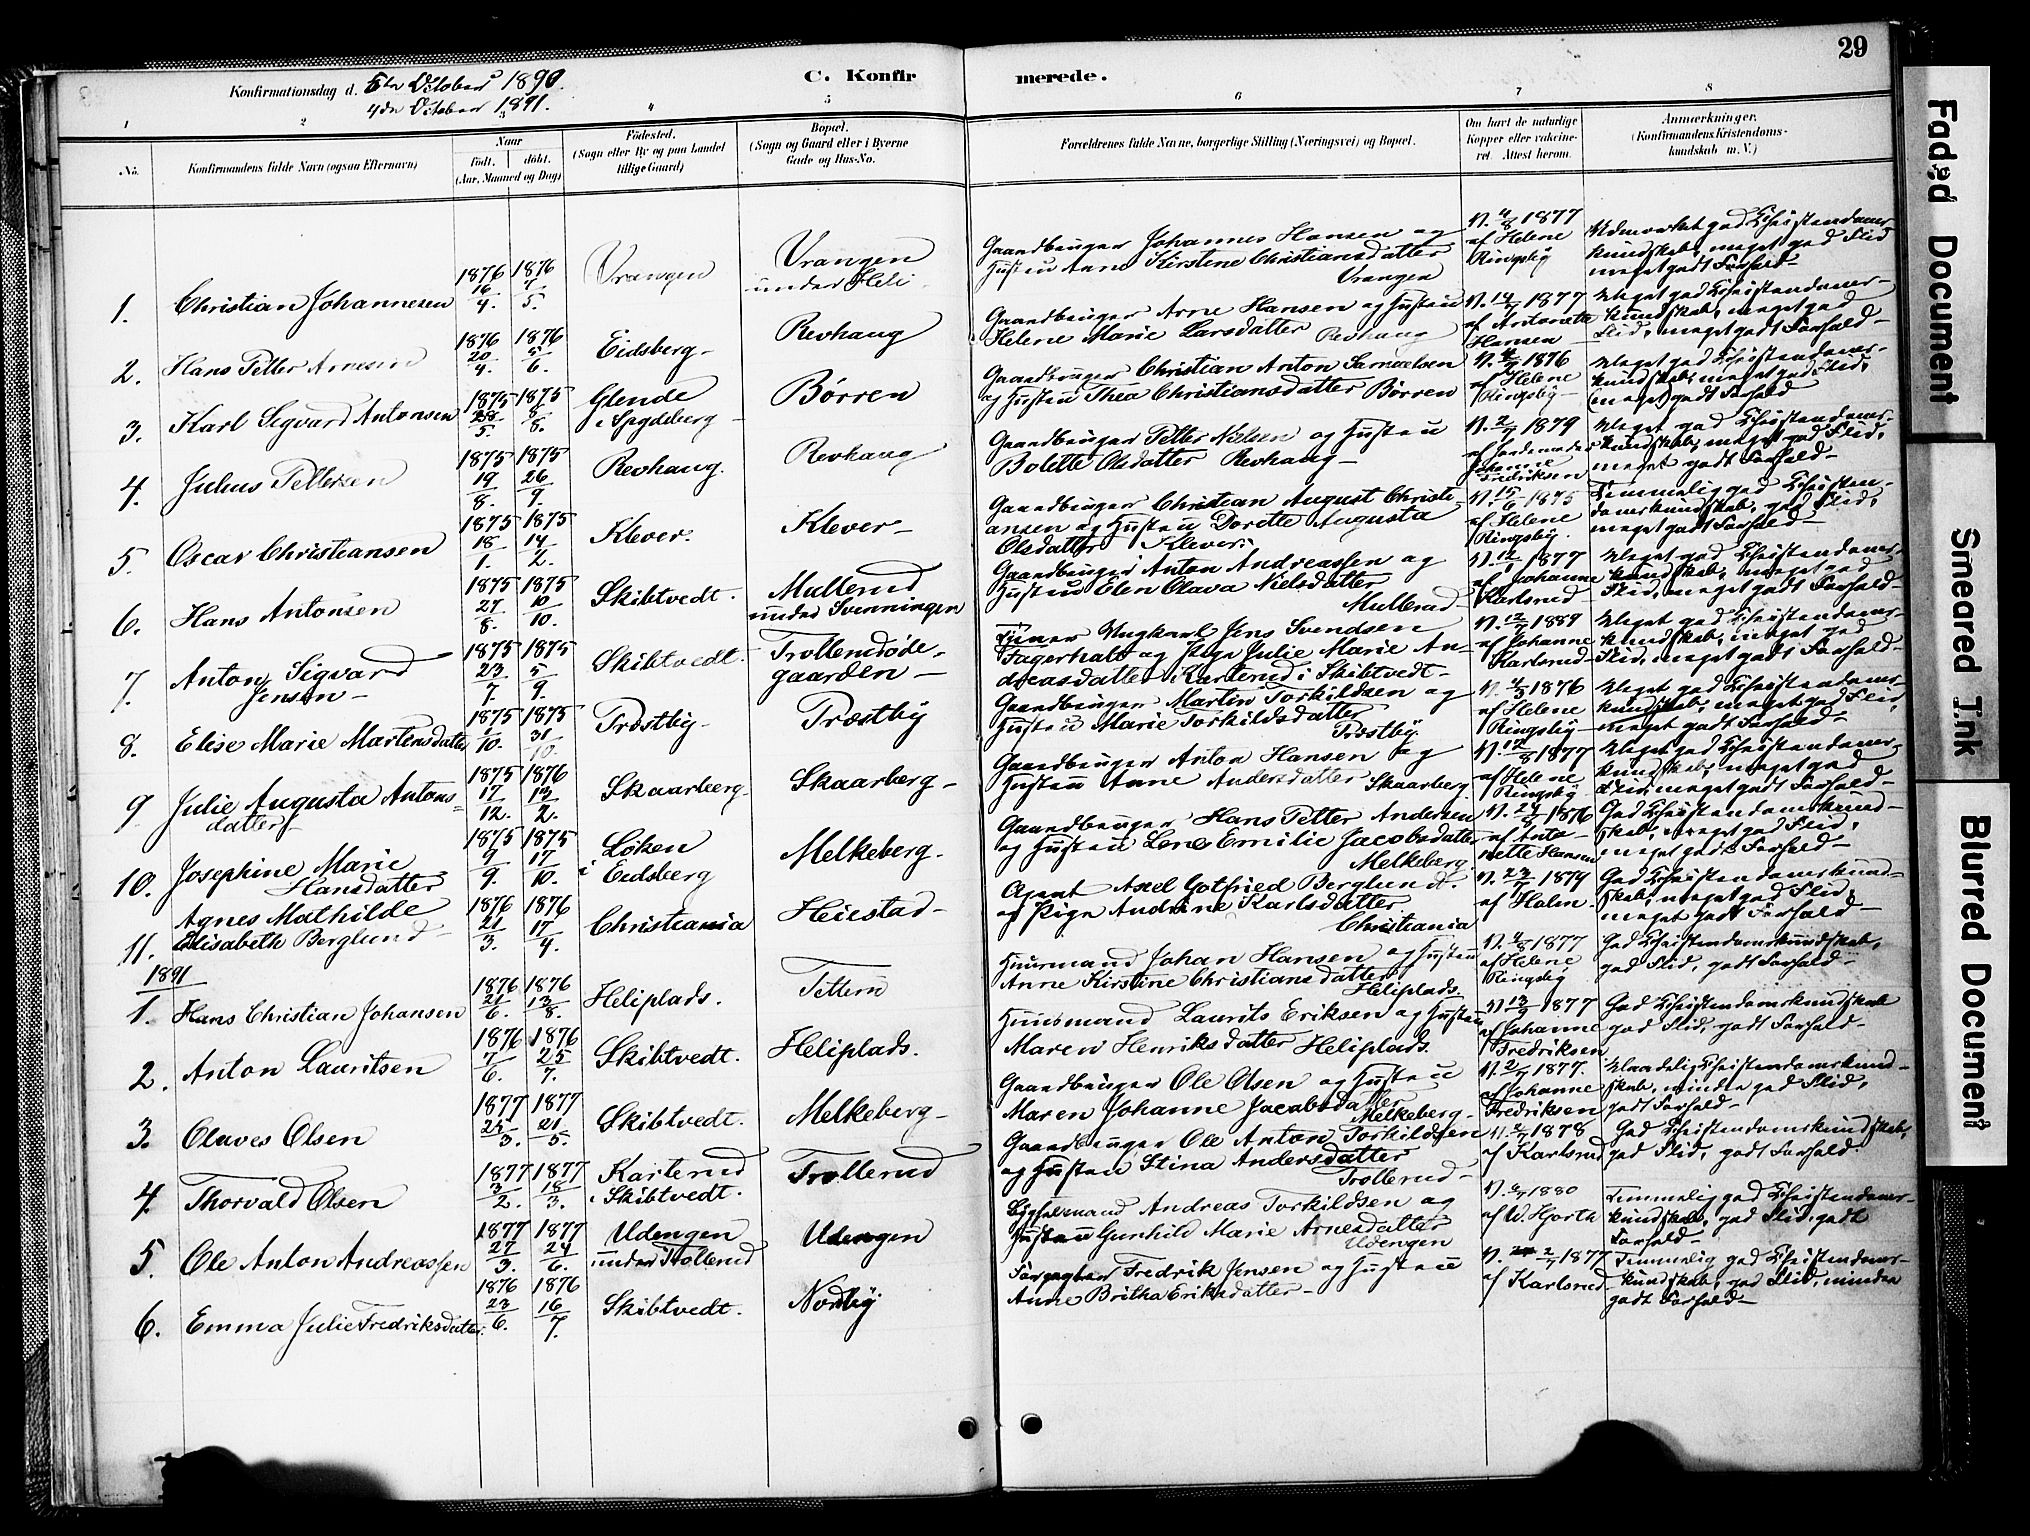 29
C. Konfirmerede.
Konfirmationsdag d. 5te October 1890.
4de October 1891.
1 2 3 4 5 6 7 8
No. Konfirmandens fulde Navn (ogsaa Efternavn) Naar født. døbt. (Aar, Maaned og Dag) Fødested. (Sogn eller By og paa Landet tillige Gaard) Bopæl. (Sogn og Gaard eller i Byerne Gade og Hus-No. Forældrenes fulde Navne, borgerlige Stilling (Næringsvei) og Bopæl. Om havt de naturlige Kopper eller vakcineret. Attest herom. Anmærkninger. (Konfirmandens Kristendomskundskab m. V.)
1. Christian Johannesen 1876 16/4. 1876 7/5. Vrangen Vrangen under Heli Gaardbruger Johannes Hansen og Hustru Anne Kirstine Christiansdatter Vrangen V. 4/8 1877 af Helene Ringsby Udmærket god Christendomskundskab, meget god Flid meget godt Forhold
2. Hans Petter Arnesen 1876 20/4. 1876 5/6. Eidsberg Revhaug Gaardbruger Arne Hansen og Hustru Helene Marie Larsdatter Revhaug V. 14/7 1877 af Antonette Hansen Meget god Christendomskundskab, meget god Flid, meget godt Forhold
3. Karl Sigvard Antonsen 1875 28/5. 1875 8/8. Glende i Spydeberg Børren Gaardbruger Christian Anton Samuelsen og Hustru Thea Christiansdatter Børren 1876 af Helene Ringsby Meget god Christendomskundskab, meget god Flid, (meget) godt Forhold
4. Julius Pettersen 1875 19/8. 1875 26/9. Revhaug. Revhaug Gaardbruger Petter Nielsen og Hustru Bolette Olsdatter Revhaug V. 2/7 1879 af Jordemoder Johanne Fredriksen Meget god Christendomskundskab, meget god Flid, meget godt Forhold
5. Oscar Christiansen 1875 18/1. 1875 14/2. Klever. Klever Gaardbruger Christian August Christiansen og Hustru Dorette Augusta Olsdatter Klever. V. 15/6 1875 af Helene Ringsby. Temmelig god Christendomskundskab, god Flid, meget godt Forhold
6. Hans Antonsen 1875 27/8. 1875 10/10. Skibtvedt. Mullerud under Svenningen Gaardbruger Anton Andreassen og Hustru Elen Olava Nielsdatter Mullerud 1877 af Johanne Karlsrud Meget god Christendomskundskab, meget god Flid, meget godt Forhold
7. Anton Sigvard Jensen 1875 23/7. 1875 5/9. Skibtvedt. Trollerudødegaarden Tjener Ungkarl Jens Svendsen Fagerholt og Pige Julie Marie Andreasdatter Karterud i Skibtvedt af Johanne Karlsrud Meget god Christendomskundskab, meget god Flid, meget godt Forhold
8. Elise Marie Martinsdatter 1875 1/10. 1875 31/10. Træstby Træstby Gaardbruger Martin Torkildsen og Hustru Marie Torkildsdatter Træstby. 1876 af Helene Ringsby Meget god Christendomskundskab, meget god Flid, meget godt Forhold
9 Julie Augusta Antonsdatter 1875 17/12. 1876 13/2. Skaarberg Skaarberg Gaardbruger Anton Hansen og Hustru Anne Andersdatter Skaarberg 1877 af Helene Ringsby. Meget god Christendomskundskab, meget god Flid, meget godt Forhold
10. Josephine Marie Hansdatter 1875 9/9. 1875 17/10. Løken i Eidsberg Melkeberg. Gaardbruger Hans Petter Andersen og Hustru Lene Emilie Jacobsdatter Melkeberg 1876 af Antonette Hansen God Christendomskundskab, meget god Flid, meget godt Forhold
11. Agnes Mathilde Elisabeth Berglund 1876 21/3. 1876 17/4. Christiania Heiestad Agent Axel Gotfried Berglund. og Pige Andrine Karlsdatter Christiania af Holm. God Christendomskundskab, meget god Flid, meget godt Forhold
1891
1. Hans Christian Johansen 1876 21/6. 1876 13/8. Heliplads. Husmand Johan Hansen og Hustru Anne Kirstine Christiansdatter Heliplads. V. 4/8 1877 af Helene Ringsby God Christendomskundskab, god Flid, godt Forhold
2. Anton Lauritsen 1876 7/6. 1876 25/7. Skibtvedt. Heliplads. Husmand Laurits Eriksen og Hustru Maren Henriksdatter Heliplads. 1877 af Johanne Fredriksen God Christendomskundskab god Flid, godt Forhold
3. Olaves Olsen 1877 25/3. 1877 21/5. Skibtvedt. Melkeberg Gaardbruger Ole Olsen og Hustru Maren Johanne Jacobsdatter Melkeberg V. 2/7 1877. af Johanne Fredriksen Maadelig Christendomskundskab, mindre god Flid, godt Forhold
4. Thorvald Olsen 1877 3/2. 1877 18/3. Karterud i Skibtvedt. Trollerud Gaardbruger Ole Anton Torkildsen og Hustru Stina Andersdatter Trollerud 1878 af Karlsrud God Christendomskundskab, god Flid, godt Forhold
5. Ole Anton Andreassen 1877 27/3. 1877 24/6. Udengen under Trollerud Udengen Andreas Torkildsen og Hustru Gunhild Marie Arnesdatter Udengen 1880 af W. Hjorth Temmelig god Christendomskundskab, god Flid, godt Forhold
6. Emma Julie Fredriksdatter. 1876 23/6. 1876 16/7. Skibtvedt. Nordby Fredrik Jensen og Hustru Anne Britha Eriksdatter V. 2/7 1877 af Karlsrud Temmelig god Christendomskundskab, god Flid, mindre godt Forhold
Faded Document
Smeared Ink
Blurred Document